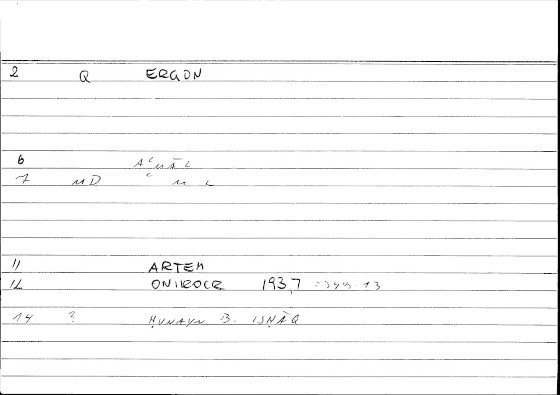 2 Q ERGON
6 AʿMĀL
7 MD ʿ M L
11 ARTEM
12 ONIROCR 193,7
14 ? ḤUNAYN B. ISḤĀQ